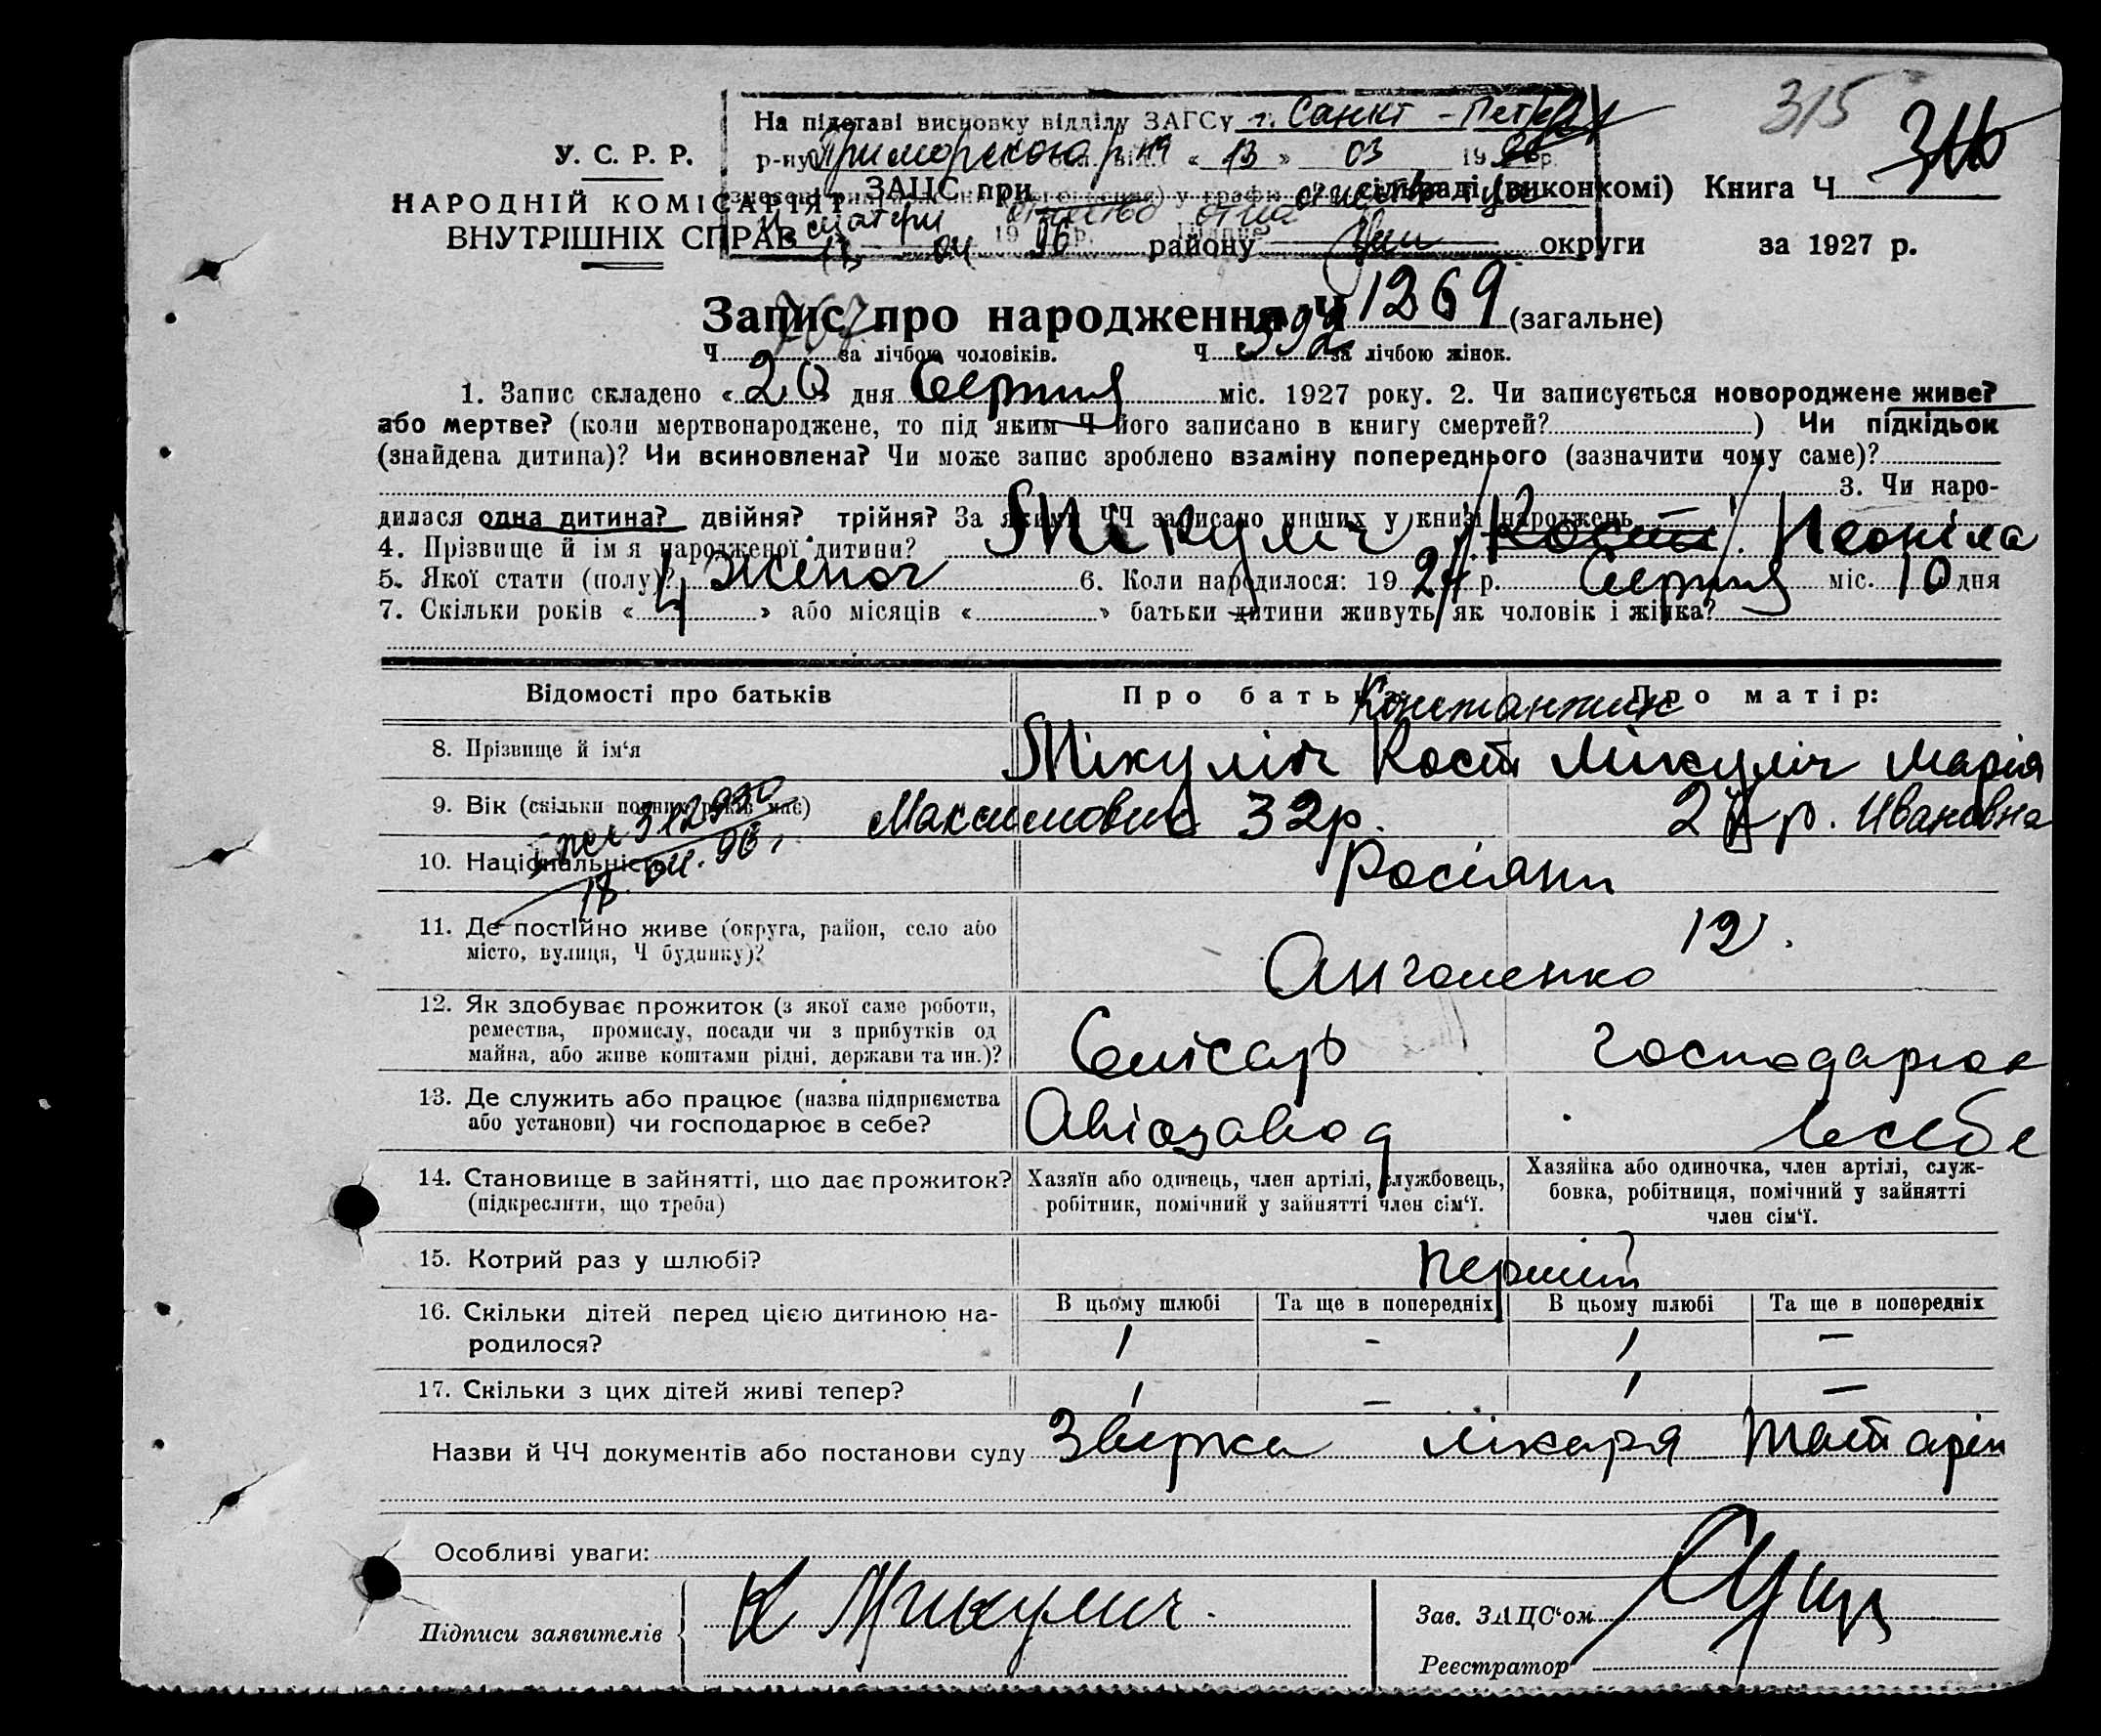 315
На підставі висновку відділу ЗАГСу г. Санкт-Петерб
р-ну Приморского р-на від. « 13 » 03 1996 р.
316
У. С. Р. Р.
НАРОДНІЙ КОМІСАРІЯТ
ВНУТРІШНІХ СПРАВ
ЗАЦС при сільраді (виконкомі) Книга Ч.
у графи отчество отца
и матери
04 1996 р. району округи за 1927 р.
Запис про народження Ч 1269 (загальне)
Ч 767 за лічбою чоловіків. Ч 592 за лічбою жінок.
1. Запис складено « 20 » дня Серпня міс. 1927 року. 2. Чи записується новороджене живе?
або мертве? (коли мертвонароджене, то під яким Ч його записано в книгу смертей? ) Чи підкідьок
(знайдена дитина)? Чи всиновлена? Чи може запис зроблено взаміну попереднього (зазначити чому саме)?
3. Чи наро-
дилася одна дитина? двійня? трійня? За якими ЧЧ записано инших у книзі народжень
4. Прізвище й ім я народженої дитини? Мікуліч Неоніла
5. Якої стати (полу)? Жіноч 6. Коли народилося: 1927 р. Серпня міс. 10 дня
7. Скільки років « 4 » або місяців « » батьки дитини живуть як чоловік і жінка?
Відомості про батьків Про батька: Про матір:
Константин
8. Прізвище й ім‘я Мікуліч Кост Мікуліч Марія
9. Вік (скільки повних років має) Максимович 32р. 27 р. Ивановна
18.04.96г.
10. Національність Росіяни
11. Де постійно живе (округа, район, село або
місто, вулиця, Ч будинку)? 12.
Антоненко
12. Як здобуває прожиток (з якої саме роботи,
ремества, промислу, посади чи з прибутків од
майна, або живе коштами рідні, держави та ин.)? Слісарь господарює
13. Де служить або працює (назва підприємства
або установи) чи господарює в себе? Авіозавод в себе
14. Становище в зайнятті, що дає прожиток?
(підкреслити, що треба)
Хазяїн або одинець, член артілі, службовець,
робітник, помічний у зайнятті член сім‘ї.
Хазяйка або одиночка, член артілі, служ-
бовка, робітниця, помічний у зайнятті
член сім‘ї.
15. Котрий раз у шлюбі? перший
16. Скільки дітей перед цією дитиною на-
родилося?
В цьому шлюбі Та ще в попередніх В цьому шлюбі Та ще в попередніх
1 - 1 -
17. Скільки з цих дітей живі тепер? 1 - 1 -
Назви й ЧЧ документів або постанови суду лікаря
Особливі уваги:
Підписи заявителів К Микулич.
Зав. ЗАЦС‘ом
Реєстратор